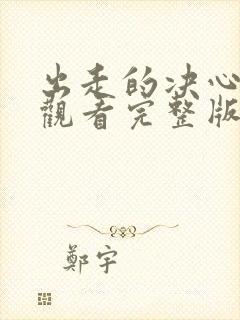 出走的决心
觀看完整版
鄭宇